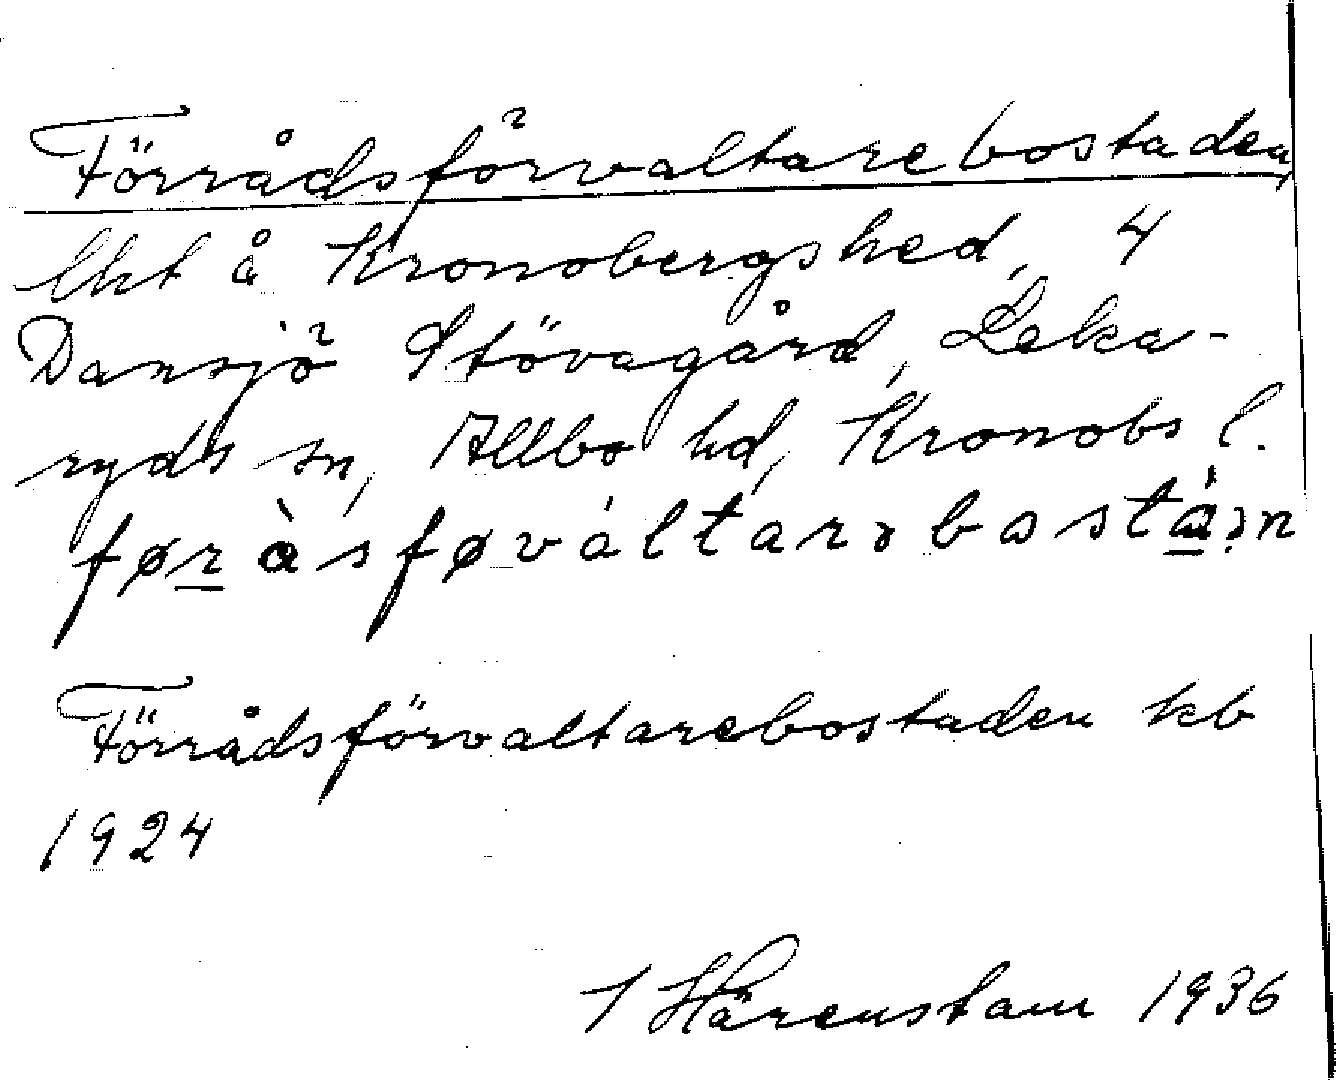 Förrådsförvaltarebostaden,
lht å Kronobergshed, 4
Dansjö Stövagård, Leka-
ryds sn, Allbo hd, Kronobs l.
føràsføváltarəbostá̀ən
Förrådsförvaltarebostaden kb
1924
I Härenstam 1936